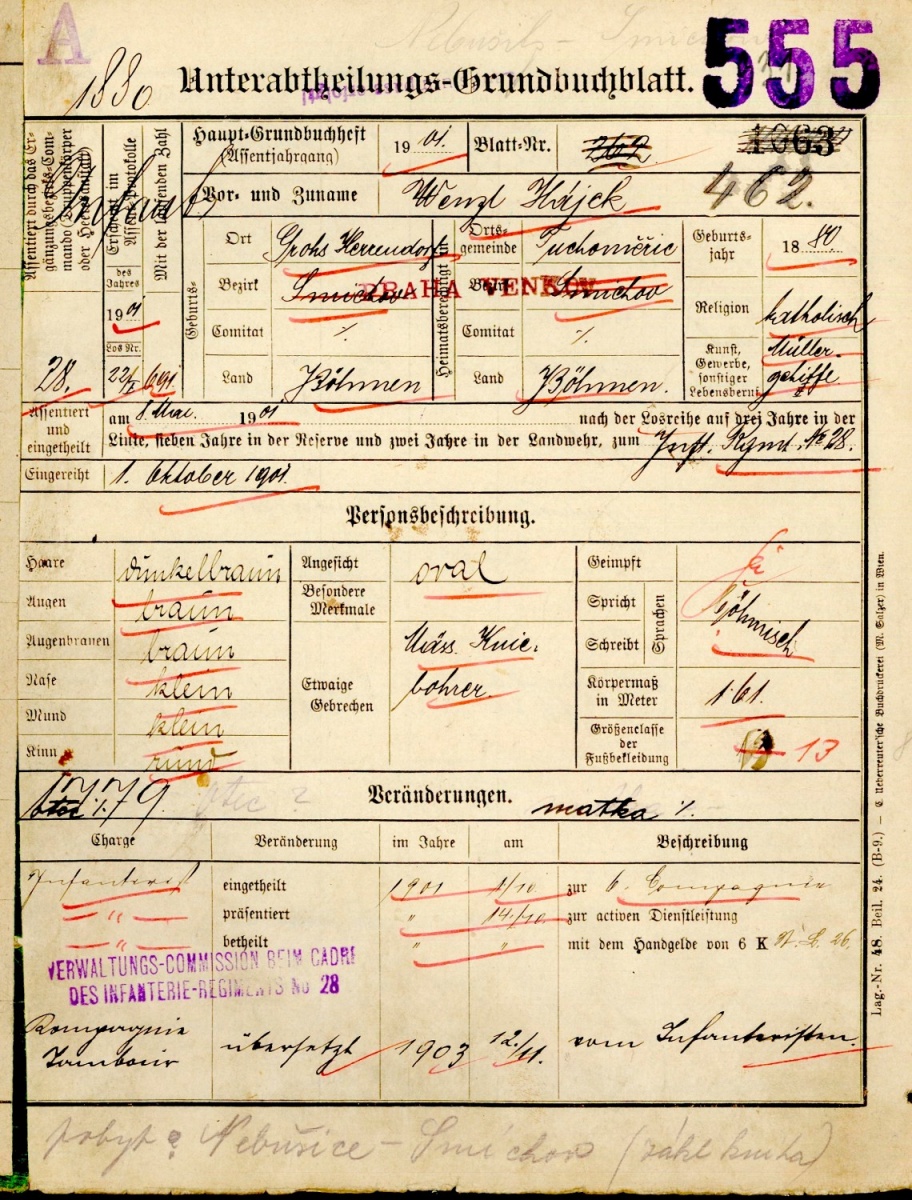 A
Nebušice - Smíchov
555
1880
Unterabtheilungs-Grundbuchblatt.
Assentiert durch das Ergänzungsbezirks-Commando (Truppenkörper oder Heeresanstalt)
28.
Erscheint im Assent-Protokolle
des Jahres
1901
Los Nr.
22/I
Mit der laufenden Zahl
691
Haupt-Grundbuchheft
(Assentjahrgang)
1901.
Blatt-Nr.
362
1063
462.
Vor- und Zuname
Wenzl Hájek
Geburts-
Ort
Bezirk
Smichov
Comitat
·/.
Land
Böhmen
Heimatsberechtigt
Ortsgemeinde
Tuchoměřic
Bezirk
Smichov
PRAHA VENKOV
Comitat
·/.
Land
Böhmen.
Geburtsjahr
1880
Religion
katholisch
Kunst, Gewerbe, sonstiger Lebensberuf
Müller-
gehilfe
Assentiert und eingetheilt
am 8. Mai. 1901 nach der Losreihe auf drei Jahre in der
Linie, sieben Jahre in der Reserve und zwei Jahre in der Landwehr, zum Inft. Rgmt. № 28.
Eingereiht
1. Oktober 1901
Personsbeschreibung.
Haare
dunkelbraun
Augen
braun
Augenbrauen
braun
Nase
klein
Mund
klein
Kinn
rund
Angesicht
oval
Besondere Merkmale
Etwaige Gebrechen
Mäss. Knie-
bohrer.
Geimpft
ja
Spricht
Schreibt
Sprachen
Böhmisch
Körpermaß in Meter
1·61.
Größenclasse der Fußbekleidung
13
1779
otec ·/.
otec ?
Veränderungen.
matka ·/.
Charge
Veränderung
im Jahre
am
Beschreibung
Infanterist
eingetheilt
1901
1/10.
zur 6. Compagnie
"
präsentiert
"
14/10.
zur activen Dienstleistung
"
betheilt
"
"
mit dem Handgelde von 6 K
26.
VERWALTUNGS-COMMISSION BEIM CADRE
DES INFANTERIE-REGIMENTS No 28
Kompagnie
Tambour
übersetzt
1903
12./11.
vom Infanteristen.
pobyt: Nebušice - Smíchov (zákl kniha)
Lag.-Nr. 48. Beil. 24. (B-9.) — C. Ueberreuter'sche Buchdruckerei (M. Salzer) in Wien.